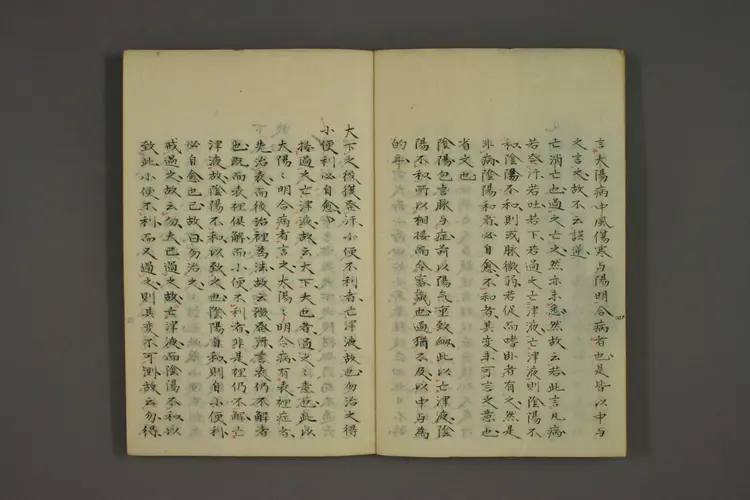 言太陽病中風傷寒与陽明合病者也是皆以中与
之言之故不云誤逆
亡消亡也過之亡之然亦未悉然故云若此言凡病
若發汗若吐若下若過之亡津液亡津液則陰陽不
和陰陽不和則或脉微弱若促而嗜卧者有之然是
非病陰陽和者必自愈不和者其变未可言之意也
省文也
陰陽包言脉与症前以陽氣重致此以亡津液陰
陽不和所以相接而令審識也過猶不及以中与為
的耳
四
大下之後復發汗小便不利者亡津液故也勿治之得
小便利必自愈
接過之亡津液故云大下夫也者過之意也此以
太陽陽明合病者言之太陽陽明合病有表裡症者
先治表而後治裡為法故云復發所言表仍不解者
也既而表裡俱解而小便不利者非是裡仍不解亡
津液故陰陽不和以致之也陰陽自和則自小便利
必自愈也已故曰勿治之
戒過之故云勿夫已過之故亡津液而陰陽不和以
致此小便不利而又過之則其变不可測故云勿得